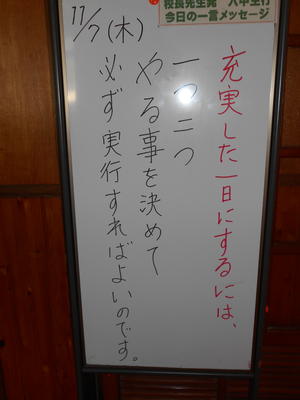 校長先生発 八中生行
今日の一言メッセージ
充実した一日にするには、
一つ二つ
やる事を決めて
必ず実行すればよいのです。
11/7(木)